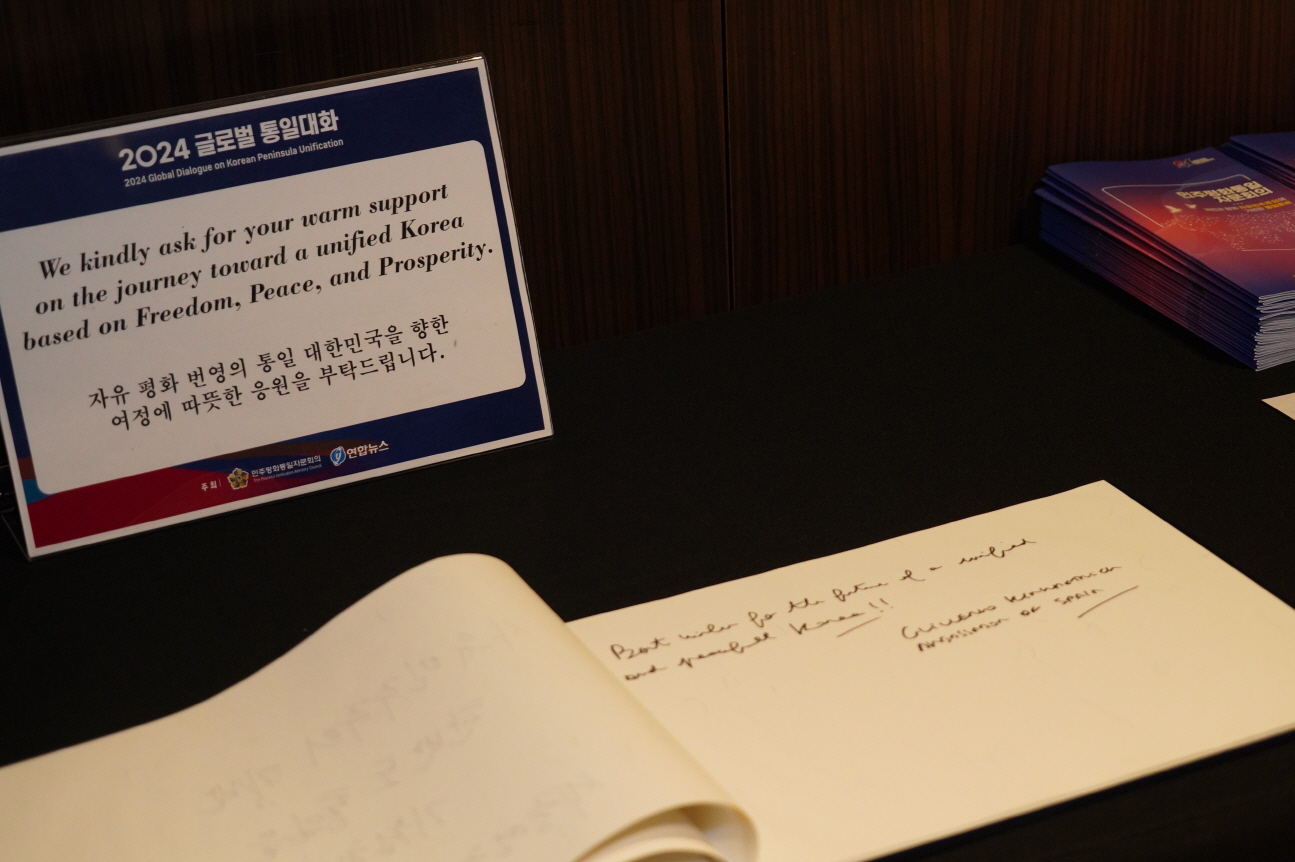 2024 글로벌 통일대화
2024 Global Dialogue on Korean Peninsula Unification
We kindly ask for your warm support
on the journey toward a unified Korea
based on Freedom, Peace, and Prosperity.
자유 평화 번영의 통일 대한민국을 향한
여정에 따뜻한 응원을 부탁드립니다.
주최
민주평화통일자문회의
The Peaceful Unification Advisory Council
연합뉴스
민주평화통일
자문회의
Best wishes for the future of a unified
and peacefull Korea!!
OF SPAIN